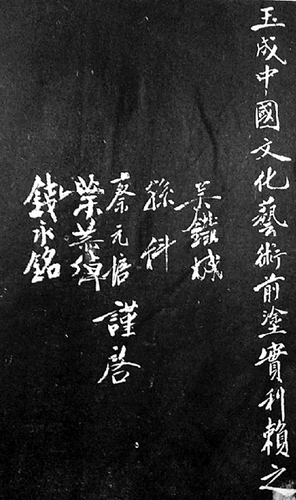 玉成中國文化藝術前塗實利賴之
吳鐵城
孫科
蔡元培
葉恭綽
錢永銘
謹啓